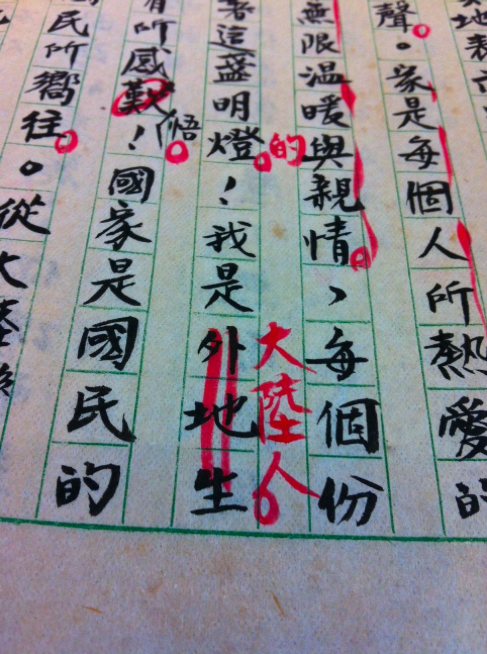 地表
聲。家是每個人所熱愛的
無限溫暖與親情，每個份
的
大陸人
著這盞明燈！我是外地生
悟
有所感歎！國家是國民的
民所嚮往。從大陸